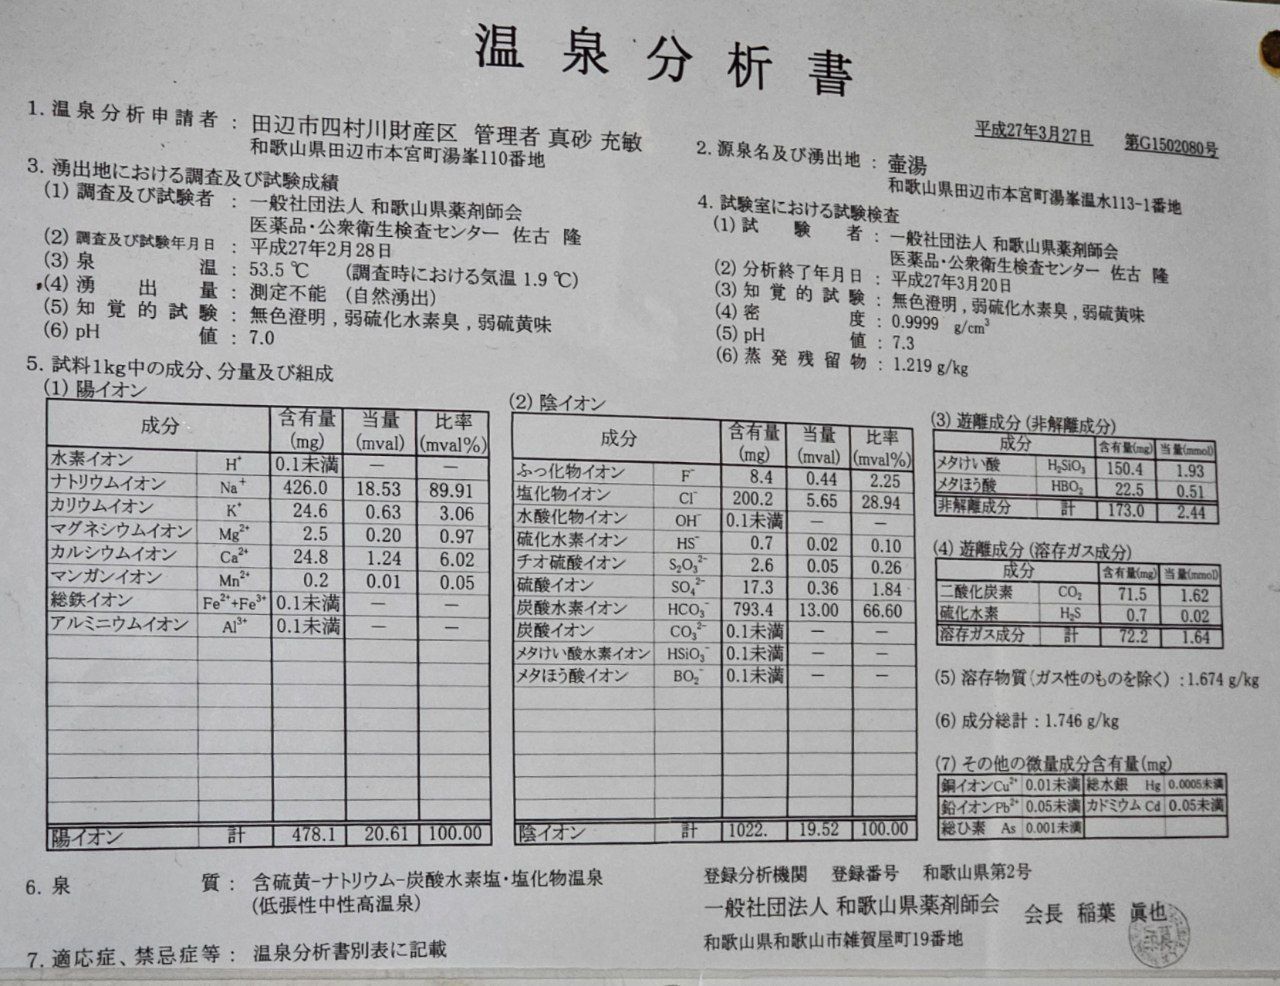 温泉分析書
平成27年3月27日 第G1502080号
1. 温泉分析申請者 : 田辺市四村川財産区 管理者 真砂 充敏
和歌山県田辺市本宮町湯峯110番地
2. 源泉名及び湧出地 : 壷湯
和歌山県田辺市本宮町湯峯温水113-1番地
3. 湧出地における調査及び試験成績
(1) 調査及び試験者 : 一般社団法人 和歌山県薬剤師会
医薬品・公衆衛生検査センター 佐古 隆
(2) 調査及び試験年月日 : 平成27年2月28日
(3) 泉温 : 53.5 ℃ (調査時における気温 1.9 ℃)
(4) 湧出量 : 測定不能 (自然湧出)
(5) 知覚的試験 : 無色澄明 , 弱硫化水素臭 , 弱硫黄味
(6) pH値 : 7.0
4. 試験室における試験検査
(1) 試験者 : 一般社団法人 和歌山県薬剤師会
医薬品・公衆衛生検査センター 佐古 隆
(2) 分析終了年月日 : 平成27年3月20日
(3) 知覚的試験 : 無色澄明 , 弱硫化水素臭 , 弱硫黄味
(4) 密度 : 0.9999 g/cm³
(5) pH値 : 7.3
(6) 蒸発残留物 : 1.219 g/kg
5. 試料1kg中の成分、分量及び組成
(1) 陽イオン
成分 含有量(mg) 当量(mval) 比率(mval%)
水素イオン H⁺ 0.1未満 — —
ナトリウムイオン Na⁺ 426.0 18.53 89.91
カリウムイオン K⁺ 24.6 0.63 3.06
マグネシウムイオン Mg²⁺ 2.5 0.20 0.97
カルシウムイオン Ca²⁺ 24.8 1.24 6.02
マンガンイオン Mn²⁺ 0.2 0.01 0.05
総鉄イオン Fe²⁺+Fe³⁺ 0.1未満 — —
アルミニウムイオン Al³⁺ 0.1未満 — —
陽イオン 計 478.1 20.61 100.00
(2) 陰イオン
成分 含有量(mg) 当量(mval) 比率(mval%)
ふっ化物イオン F⁻ 8.4 0.44 2.25
塩化物イオン Cl⁻ 200.2 5.65 28.94
水酸化物イオン OH⁻ 0.1未満 — —
硫化水素イオン HS⁻ 0.7 0.02 0.10
チオ硫酸イオン S₂O₃²⁻ 2.6 0.05 0.26
硫酸イオン SO₄²⁻ 17.3 0.36 1.84
炭酸水素イオン HCO₃⁻ 793.4 13.00 66.60
炭酸イオン CO₃²⁻ 0.1未満 — —
メタけい酸水素イオン HSiO₃⁻ 0.1未満 — —
メタほう酸イオン BO₂⁻ 0.1未満 — —
陰イオン 計 1022. 19.52 100.00
(3) 遊離成分 (非解離成分)
成分 含有量(mg) 当量(mmol)
メタけい酸 H₂SiO₃ 150.4 1.93
メタほう酸 HBO₂ 22.5 0.51
非解離成分 計 173.0 2.44
(4) 遊離成分 (溶存ガス成分)
成分 含有量(mg) 当量(mmol)
二酸化炭素 CO₂ 71.5 1.62
硫化水素 H₂S 0.7 0.02
溶存ガス成分 計 72.2 1.64
(5) 溶存物質(ガス性のものを除く) : 1.674 g/kg
(6) 成分総計 : 1.746 g/kg
(7) その他の微量成分含有量(mg)
銅イオンCu²⁺ 0.01未満 総水銀 Hg 0.0005未満
鉛イオンPb²⁺ 0.05未満 カドミウム Cd 0.05未満
総ひ素 As 0.001未満
6. 泉質 : 含硫黄-ナトリウム-炭酸水素塩・塩化物温泉
(低張性中性高温泉)
7. 適応症、禁忌症等 : 温泉分析書別表に記載
登録分析機関 登録番号 和歌山県第2号
一般社団法人 和歌山県薬剤師会 会長 稲葉 眞也
和歌山県和歌山市雑賀屋町19番地